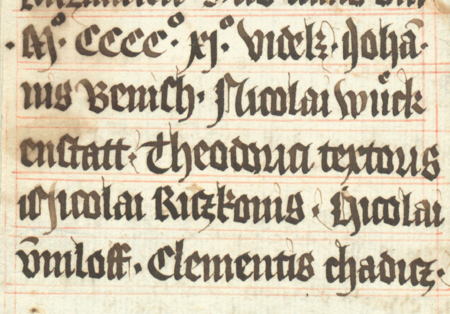 ·Mº· CCCCº· xjº· videlz· Johā-
nis Benisch· Nicolai wůck
enstatt· Theodorici textoris
Nicolai Riczkonis· Nicolai
vmiloff· Clementis chadicz·